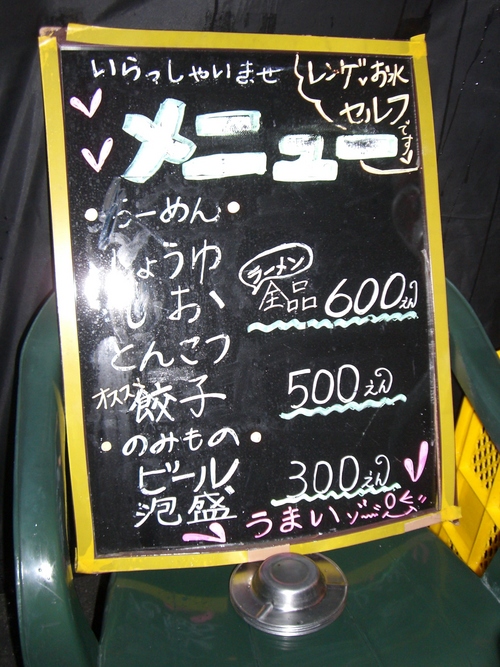 いらっしゃいませ
レンゲ、お水
セルフ
です
メニュー
・らーめん・
しょうゆ
しお
とんこつ
ラーメン
全品 600えん
オススメ 餃子 500えん
・のみもの・
ビール
泡盛 300えん
うまいゾ